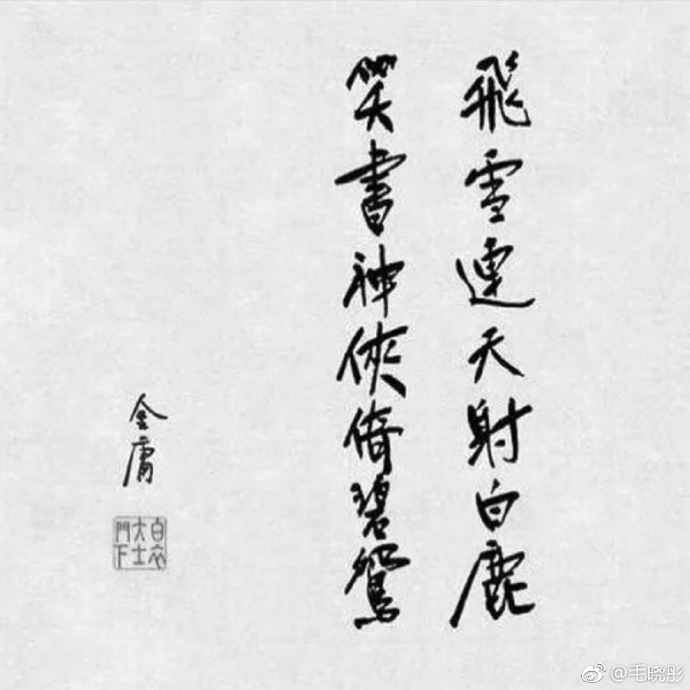 飛雪連天射白鹿
笑書神俠倚碧鴛
金庸
白衣大士門下
@毛晓彤